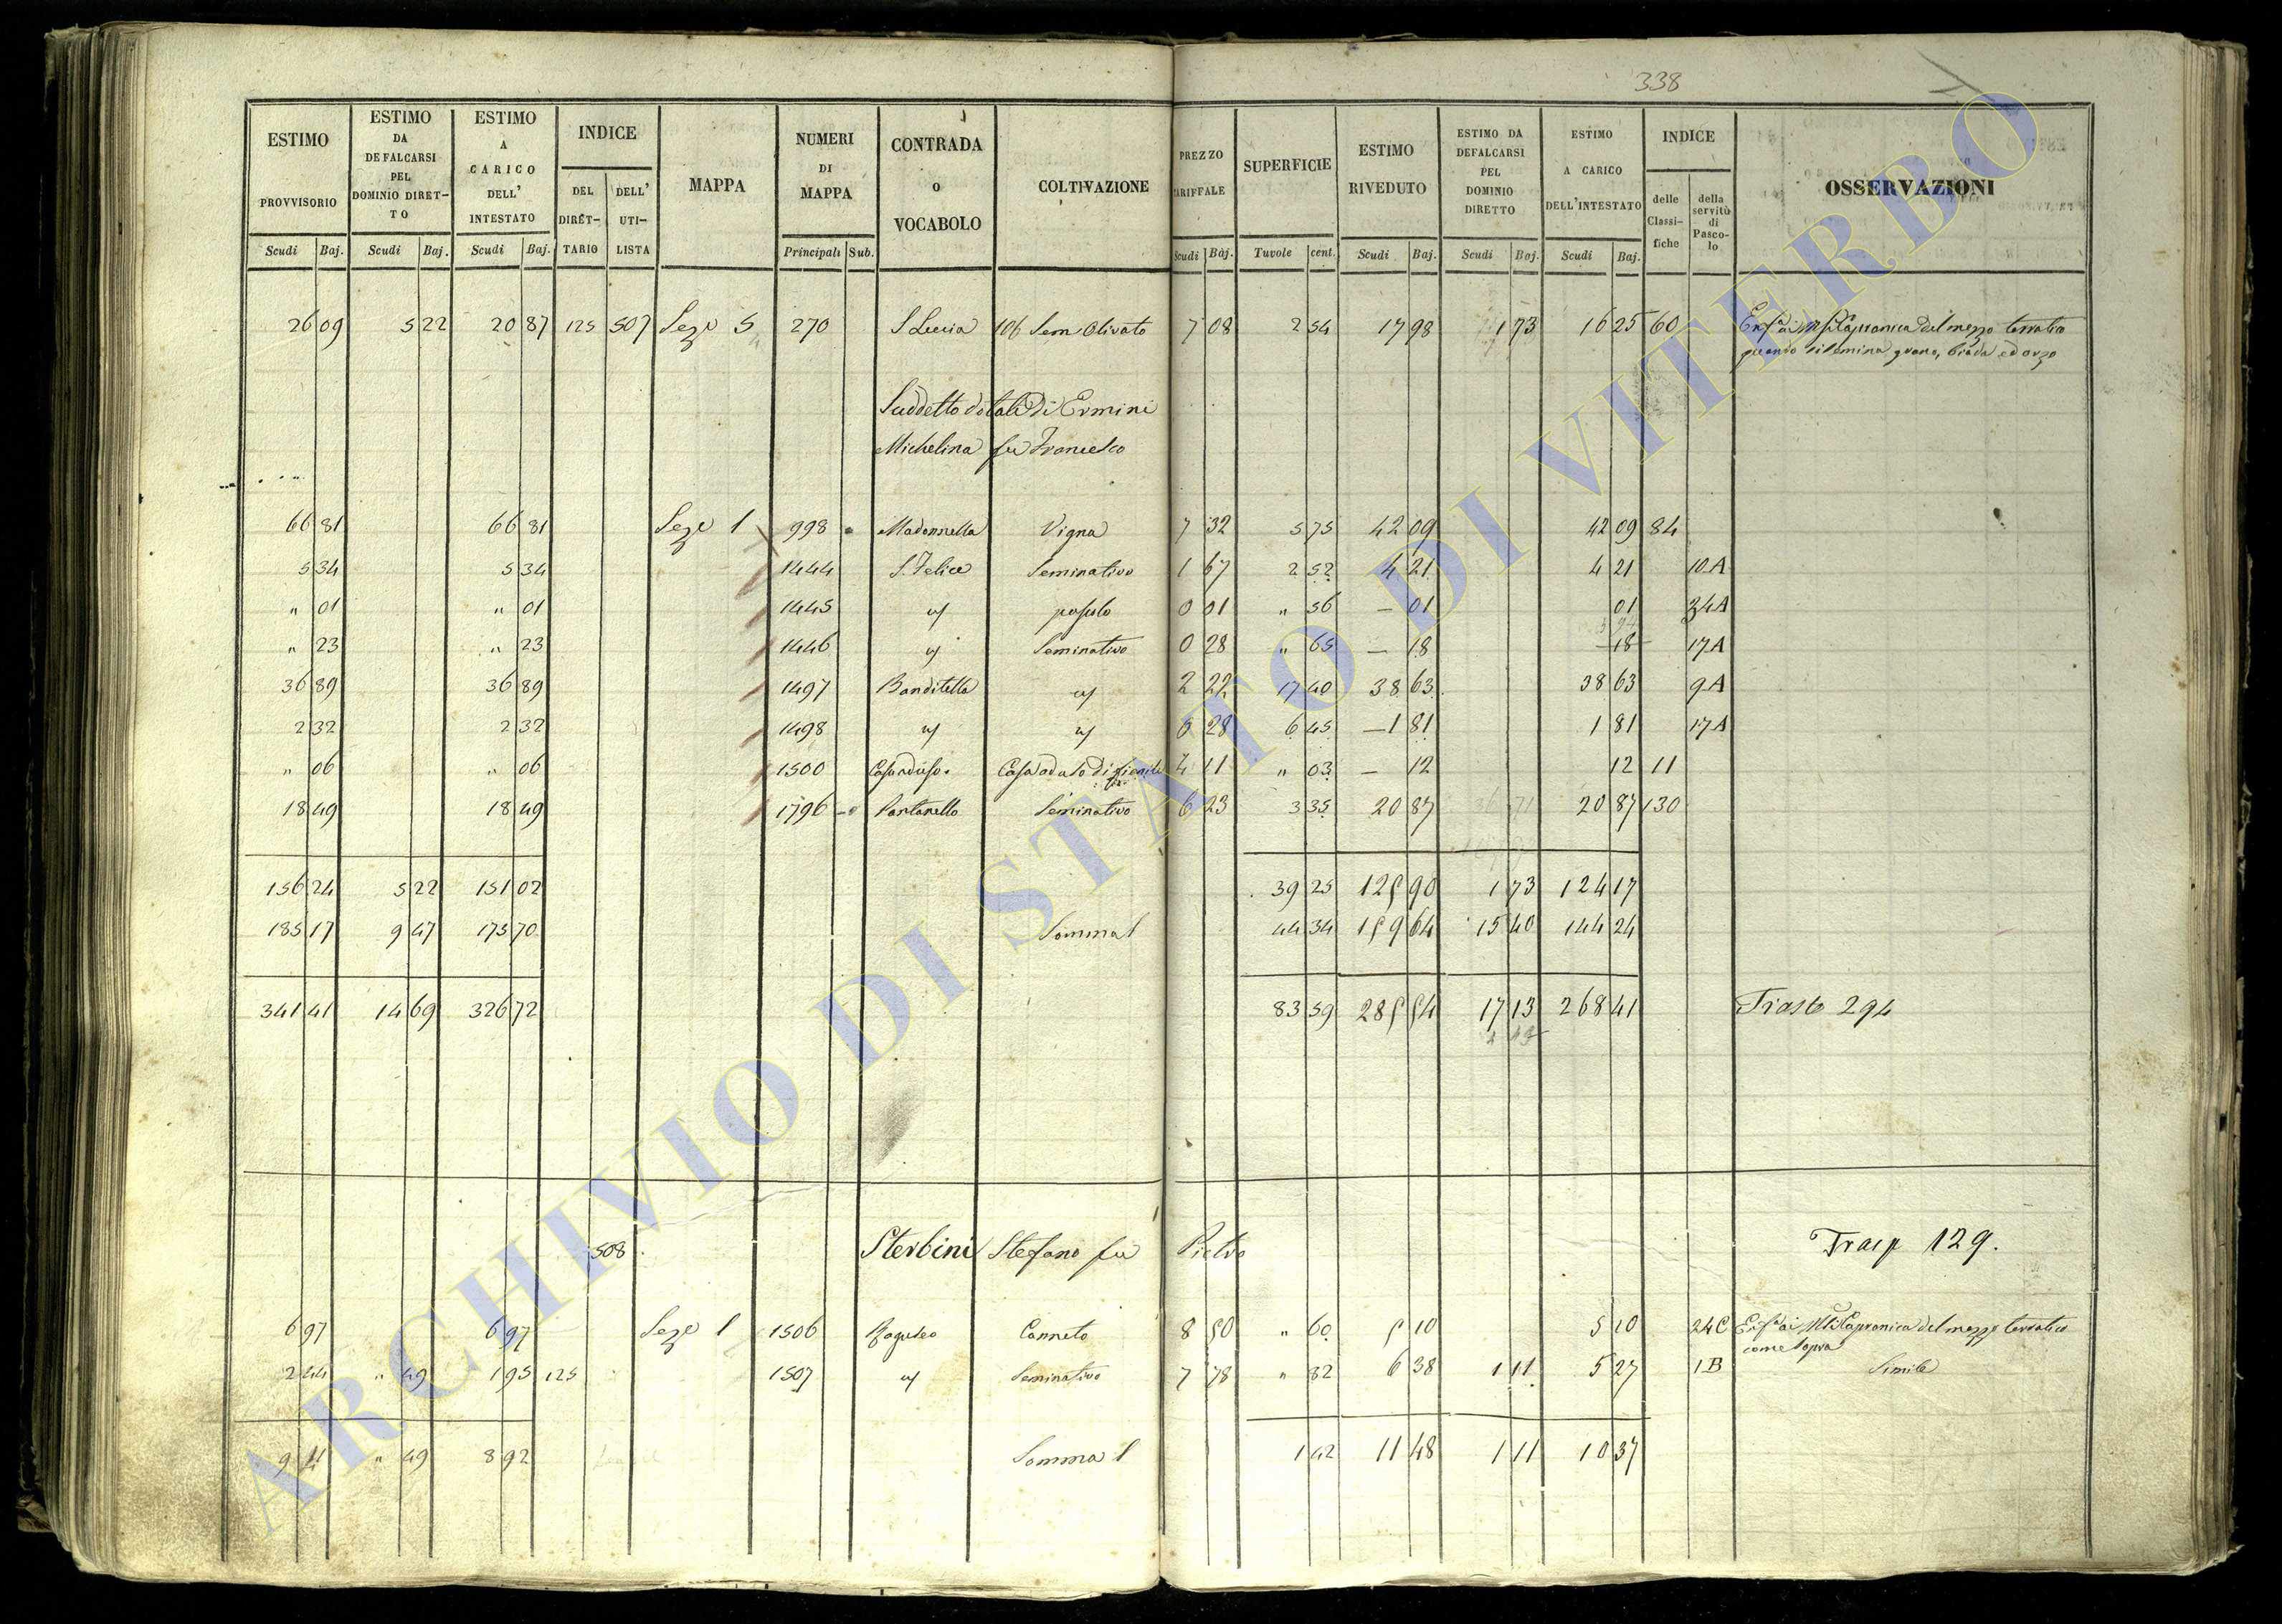 338
ESTIMO PROVVISORIO Scudi Baj.
ESTIMO DA DEFALCARSI PEL DOMINIO DIRETTO Scudi Baj.
ESTIMO A CARICO DELL' INTESTATO Scudi Baj.
INDICE DEL DIRETTARIO DELL' UTILISTA
MAPPA
NUMERI DI MAPPA Principali Sub.
CONTRADA O VOCABOLO
COLTIVAZIONE
PREZZO TARIFFALE Scudi Baj.
SUPERFICIE Tavole cent.
ESTIMO RIVEDUTO Scudi Baj.
ESTIMO DA DEFALCARSI PEL DOMINIO DIRETTO Scudi Baj.
ESTIMO A CARICO DELL'INTESTATO Scudi Baj.
INDICE delle Classifiche della servitù di Pascolo
OSSERVAZIONI
26 09 5 22 20 87 125 507 Seze 5 270 S Lucia 106 Sem Olivato 7 08 2 54 17 98 1 73 16 25 60 Capranica del mezzo terratico
quando si semina grano, biada ed orzo
Suddetto dotali di Ermini
Michelina fu Francesco
66 81 66 81 Seze 1 998 Madonnella Vigna 7 32 5 75 42 09 42 09 84
5 34 5 34 1444 S. Felice Seminativo 1 67 2 52 4 21 4 21 10A
" 01 " 01 1445 " pascolo 0 01 " 56 — 01 01 34A
" 23 " 23 1446 " Seminativo 0 28 " 65 — 18 — 18 17A
36 89 36 89 1497 Banditella " 2 22 17 40 38 63 38 63 9A
2 32 2 32 1498 " " 0 28 6 45 — 1 81 1 81 17A
" 06 " 06 1500 Casa ad uso di fienile 4 11 " 03 — 12 12 11
18 49 18 49 1796 Pantanello Seminativo 6 23 3 35 20 87 20 87 130
156 24 5 22 151 02 39 25 125 90 1 73 124 17
185 17 9 47 175 70 Somma 1 44 34 159 64 15 40 144 24
341 41 14 69 326 72 83 59 285 54 17 13 268 41 Trasto 294
508 Sterbini Stefano fu Pietro Trasp 129.
6 97 6 97 Seze 1 1506 Canneto 8 50 " 60 5 10 5 10 24C Capranica del mezzo terratico
come sopra
2 44 " 49 1 95 125 1507 " Seminativo 7 78 " 82 6 38 1 11 5 27 1B Simile
9 41 " 49 8 92 Somma 1 1 42 11 48 1 11 10 37
ARCHIVIO DI STATO DI VITERBO